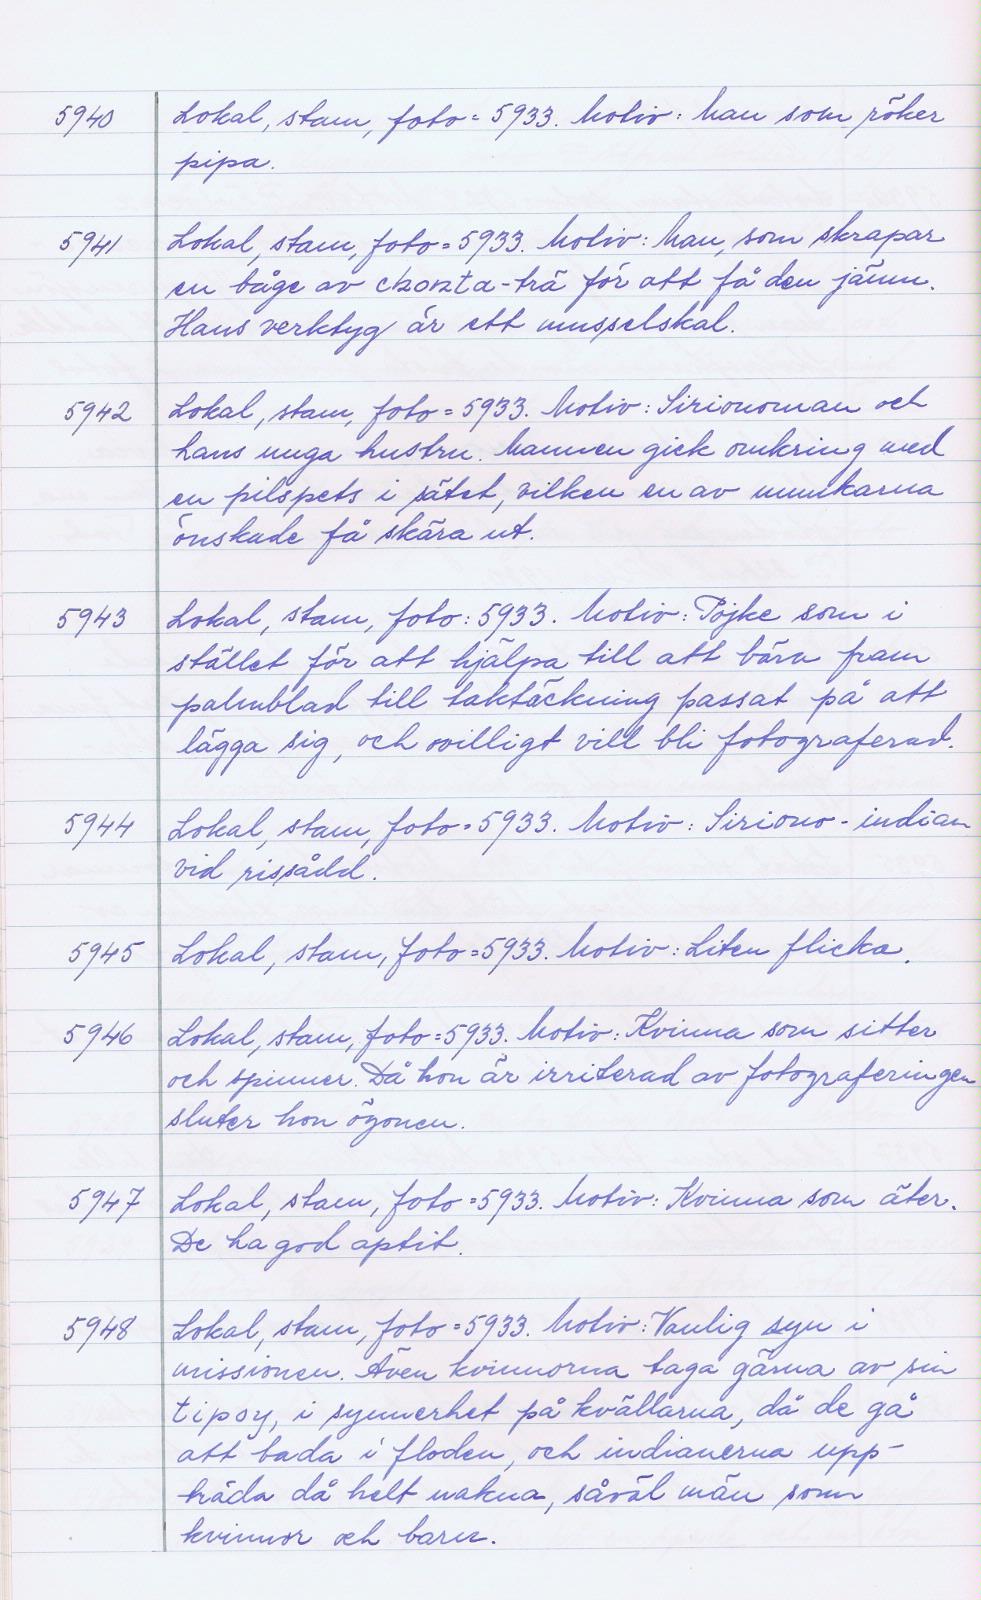 5940 Lokal, stam, foto = 5933. Motiv: Man som röker
pipa.
5941 Lokal, stam, foto = 5933. Motiv: Man, som skrapar
en båge av -trä för att få den jämn.
Hans verktyg är ett musselskal.
5942 Lokal, stam, foto = 5933. Motiv: Sirionoman och
hans unga hustru. Mannen gick omkring med
en pilspets i sätet, vilken en av munkarna
önskade få skära ut.
5943 Lokal, stam, foto: 5933. Motiv: Pojke som i
stället för att hjälpa till att bära fram
palmblad till taktäckning passat på att
lägga sig, och ovilligt vill bli fotograferad.
5944 Lokal, stam, foto = 5933. Motiv: Siriono-indian
vid rissådd.
5945 Lokal, stam, foto = 5933. Motiv: Liten flicka.
5946 Lokal, stam, foto = 5933. Motiv: Kvinna som sitter
och spinner. Då hon är irriterad av fotograferingen
sluter hon ögonen.
5947 Lokal, stam, foto = 5933. Motiv: Kvinna som äter.
De ha god aptit.
5948 Lokal, stam, foto = 5933. Motiv: Vanlig syn i
missionen. Även kvinnorna taga gärna av sin
tipoy, i synnerhet på kvällarna, då de gå
att bada i floden, och indianerna upp-
träda då helt nakna, såväl män som
kvinnor och barn.